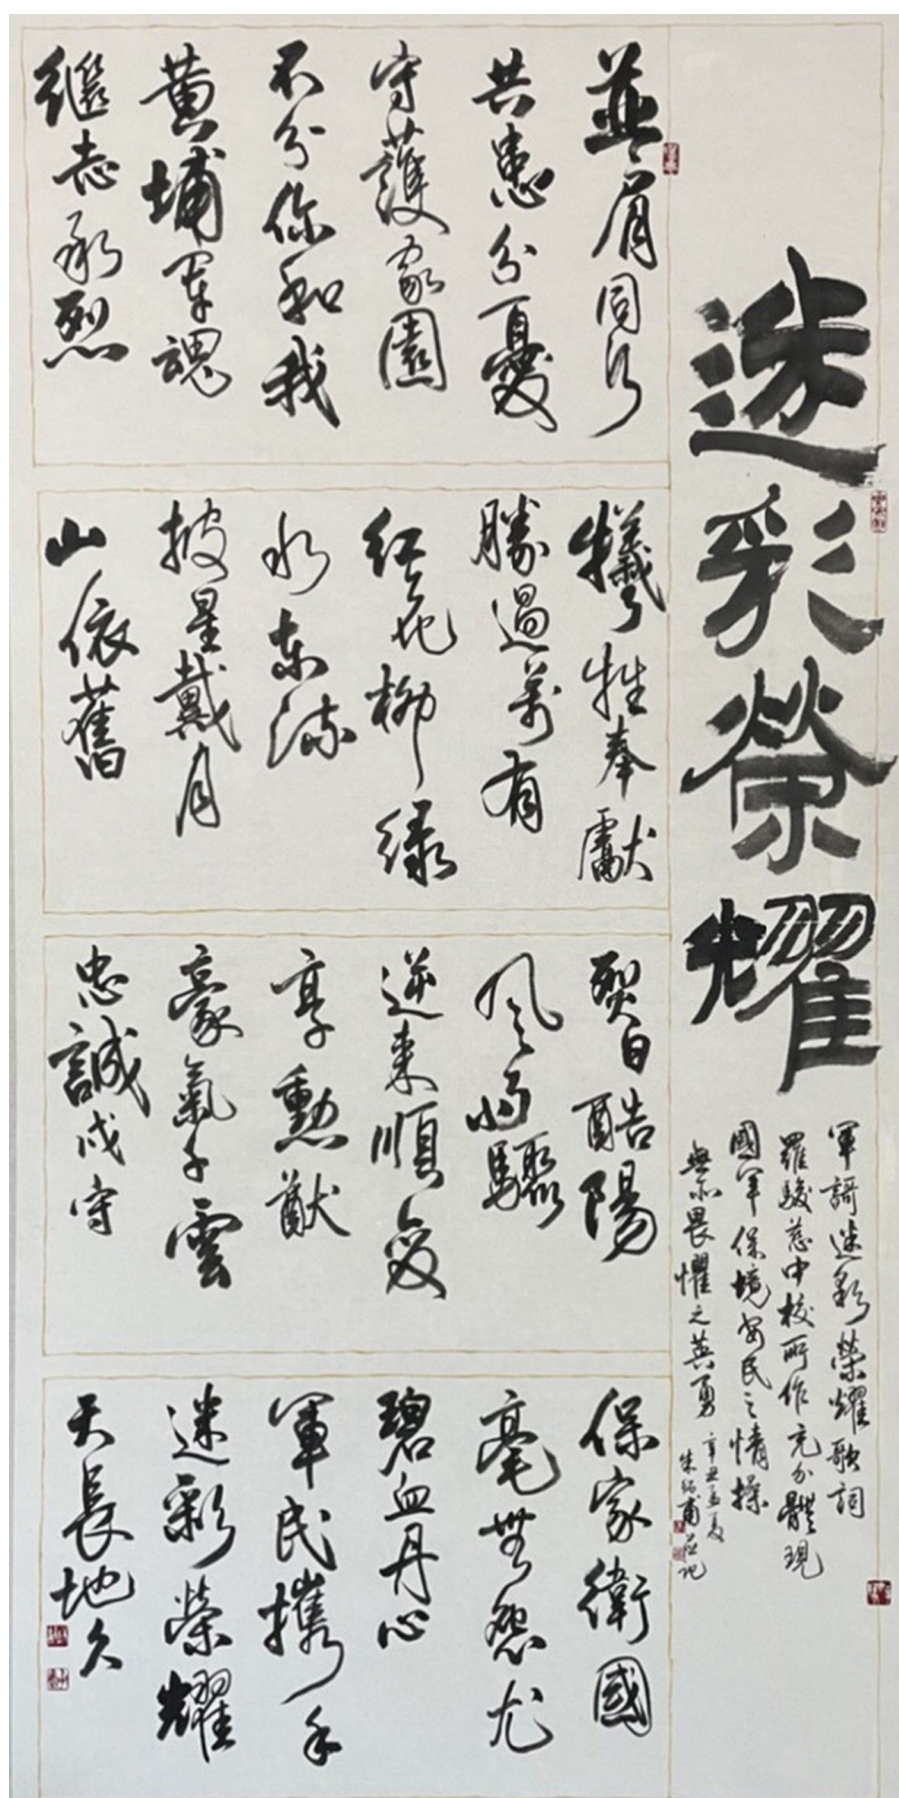 迷彩榮耀
軍謌迷彩榮耀歌詞
羅駿慈中校所作充分體現
國軍保境安民之情操
無所畏懼之英勇
辛丑孟夏
朱甫並記
並肩同行
共患分憂
守護家園
不分你和我
黃埔軍魂
繼志承烈
犧牲奉獻
勝過萬有
紅花柳綠
水東流
披星戴月
山依舊
日酷陽
風驟
逆來順受
享勳猷
豪氣干雲
忠誠戍守
保家衛國
毫無怨尤
碧血丹心
軍民攜手
迷彩榮耀
天長地久